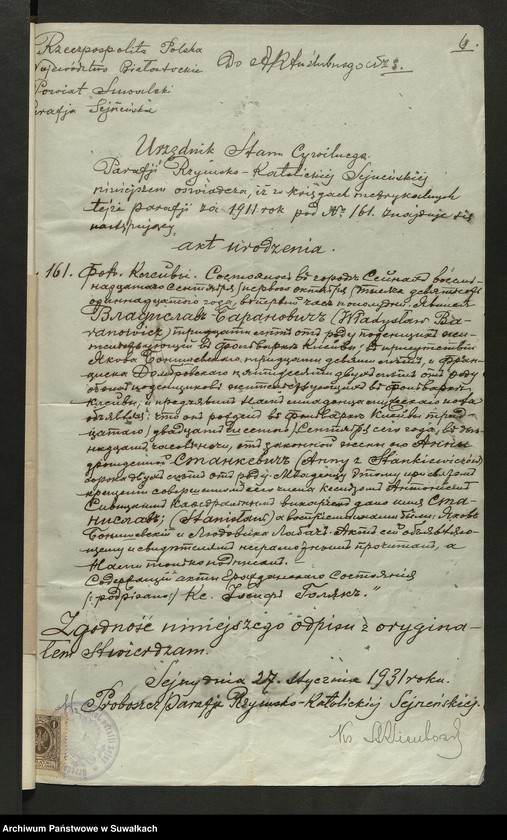 Rzeczpospolita Polska
Województwo Białostockie
Powiat Suwalski
Parafja Sejneńska
Do Aktu ślubnego № 3.
6.
Urzędnik Stanu Cywilnego
Parafji Rzymsko-Katolickiej Sejneńskiej
niniejszem oświadcza, iż w księgach metrykalnych
tejże parafji za 1911 rok pod № 161. znajduje się
następujący
akt urodzenia.
161. Фол. Состоялось въ городѣ Сейнахъ восем-
надцатого Сентября /первого октября/ тысяча девятьсотъ
одиннадцатого года, въ первый часъ пополудни. Явился
Владиславъ Барановичъ (Władysław Ba-
ranowicz) тридцати лѣтъ отъ роду поденщикъ жи-
тельствующій въ фольваркѣ въ присутствіи
Якова тридцати девяти лѣтъ, и Фран-
циска Домбровского пятидесяти двухъ лѣтъ отъ роду
обоихъ поденщиковъ жительствующихъ въ фольваркѣ
и предъявилъ Намъ младенца мужеского пола
объявляя, что онъ родился въ фольваркѣ
Сентября сего года, въ
надцать часовъ ночи, отъ законной жены его Анны
урожденной Станкевичъ (Anny z Stankiewiczów)
двухъ лѣтъ отъ роду. Младенцу этому при святомъ
крещеніи совершенномъ сего числа ксендзомъ Антоніемъ
викаріемъ дано имя Ста-
ниславъ, (Stanisław) а воспріемниками были: Яковъ
и Людовика Актъ сей объявляю-
щему и свидѣтелямъ неграмотнымъ прочитанъ, а
Нами только подписанъ.
Содержащій акты Гражданского Состоянія
(:подписано:) Кс. "
Zgodność niniejszego odpisu z orygina-
łem stwierdzam.
Sejny dnia 27. stycznia 1931 roku.
Proboszcz Parafji Rzymsko-Katolickiej Sejneńskiej.
Ks.
Archiwum Państwowe w Suwałkach